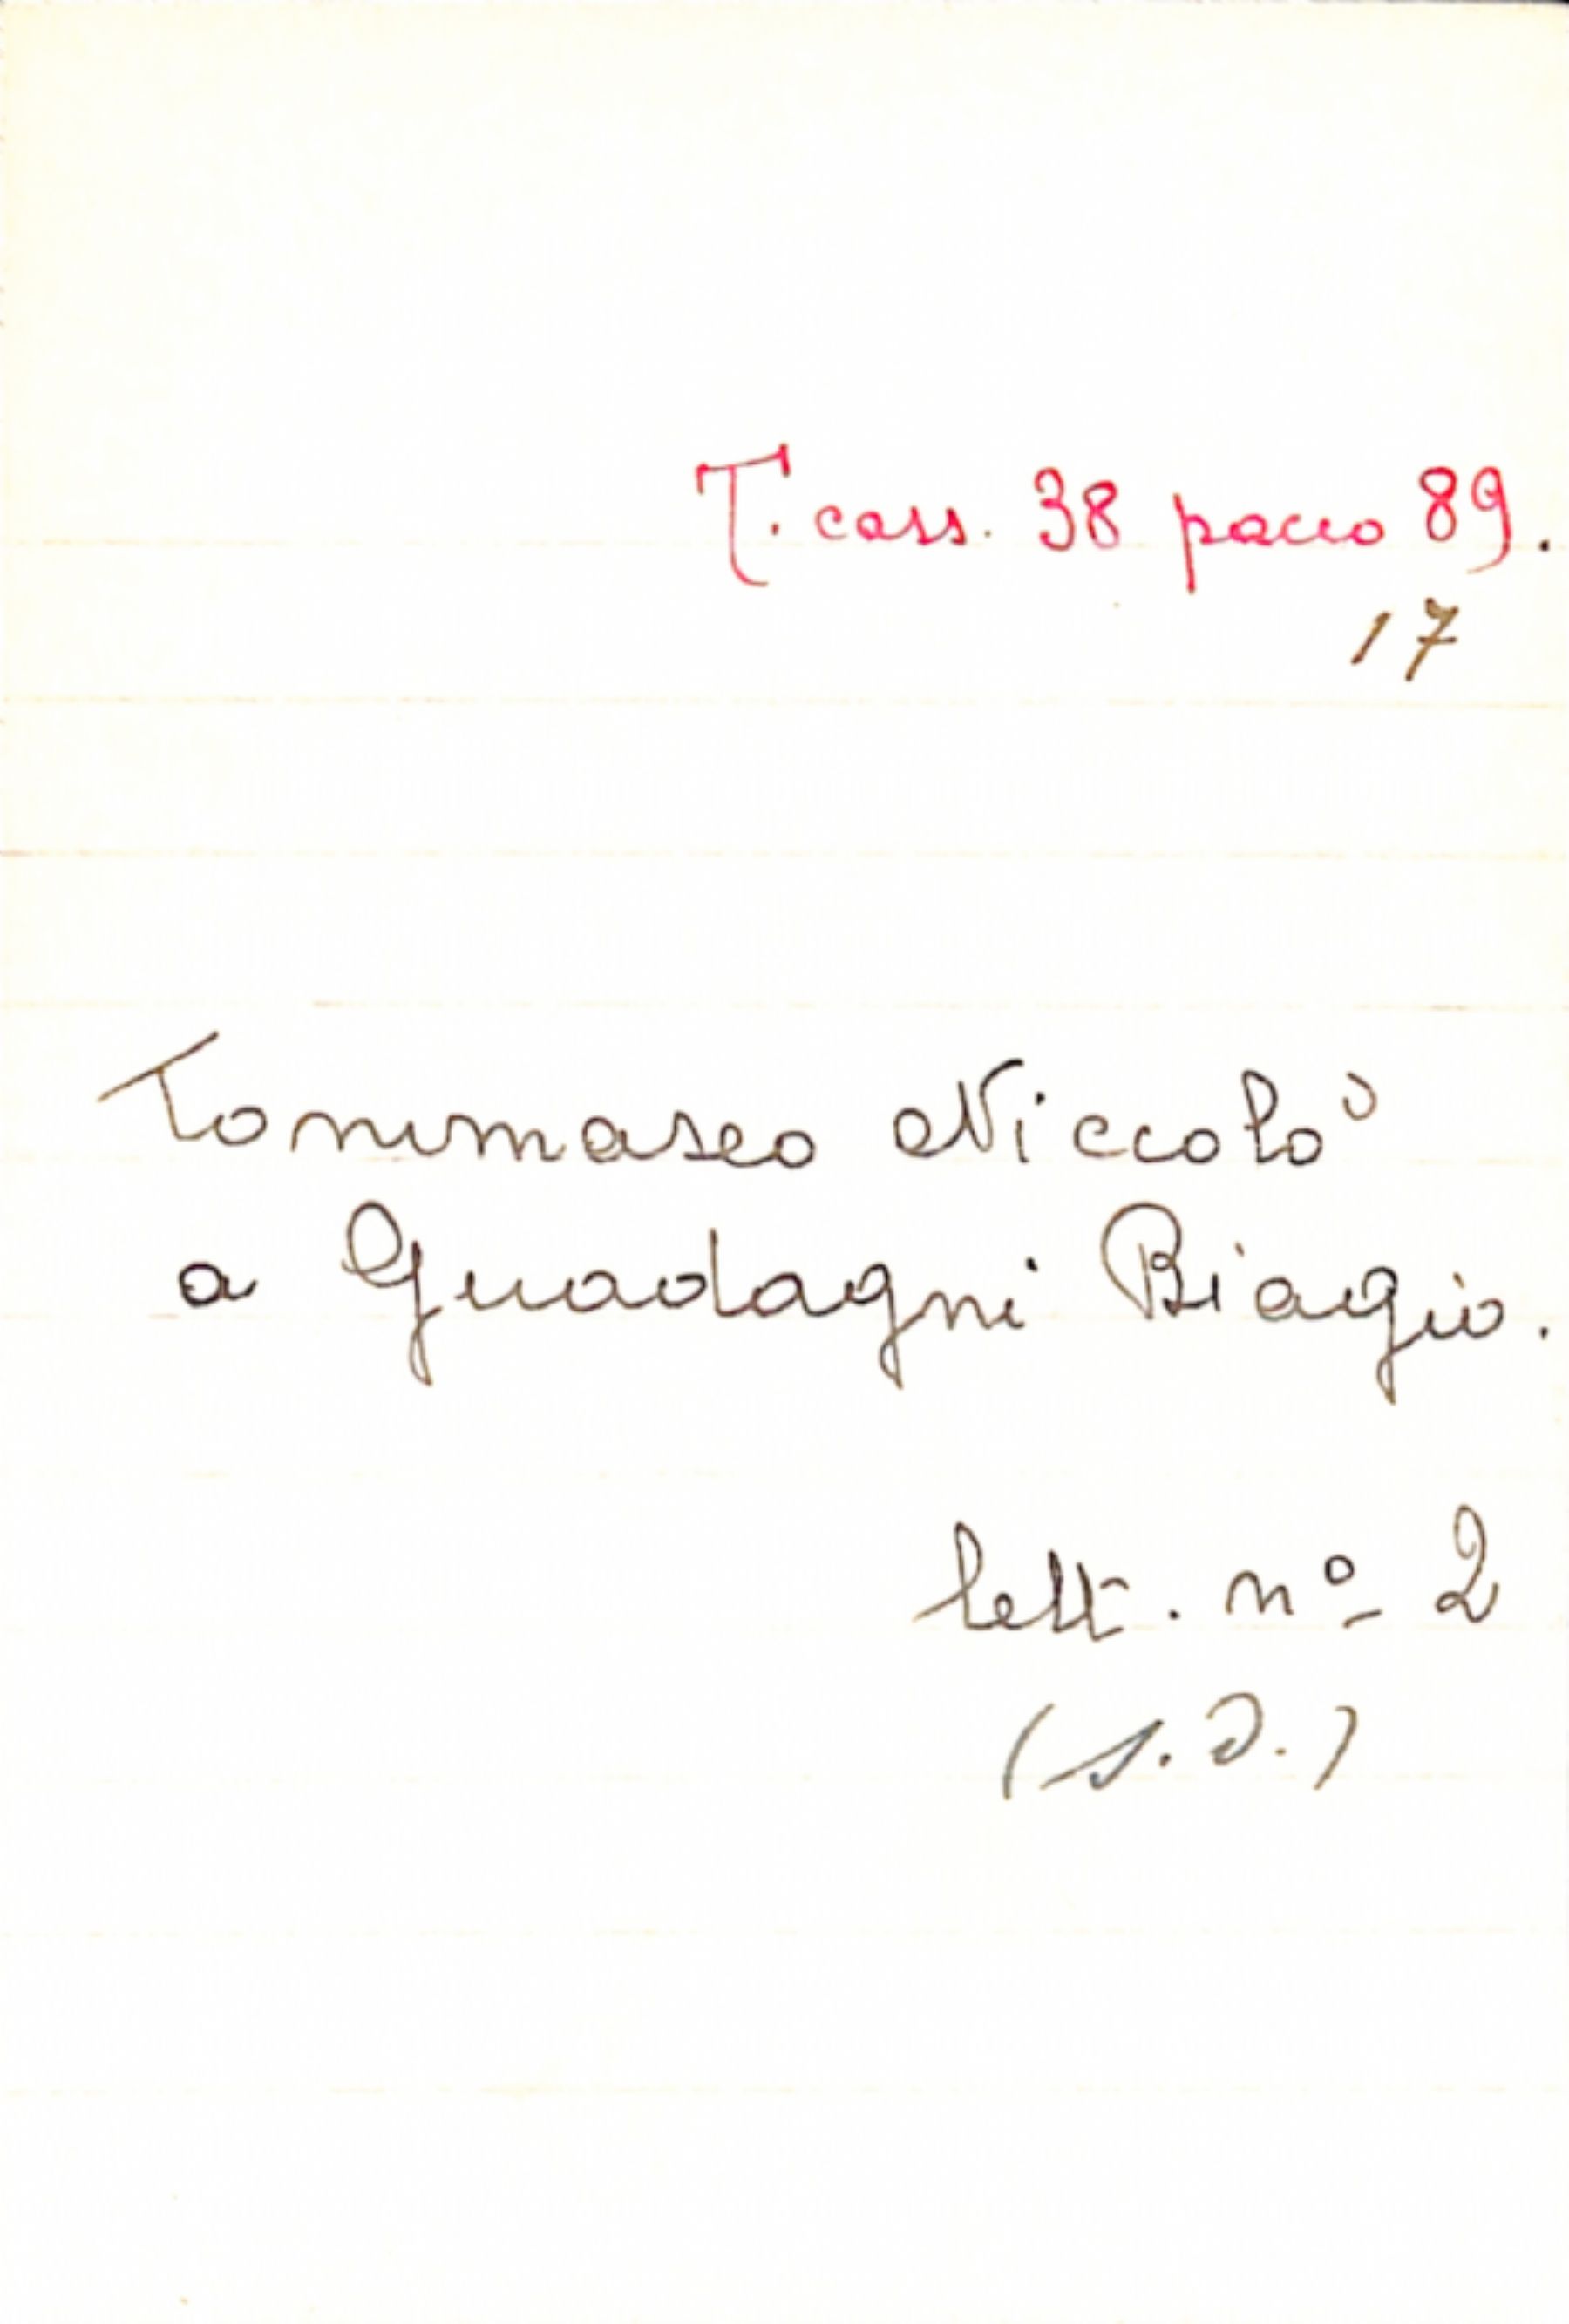 T. cass. 38 pacco 89.
17
Tommaseo Niccolò
a Guadagni Biagio.
lett. nº 2
(s.d.)